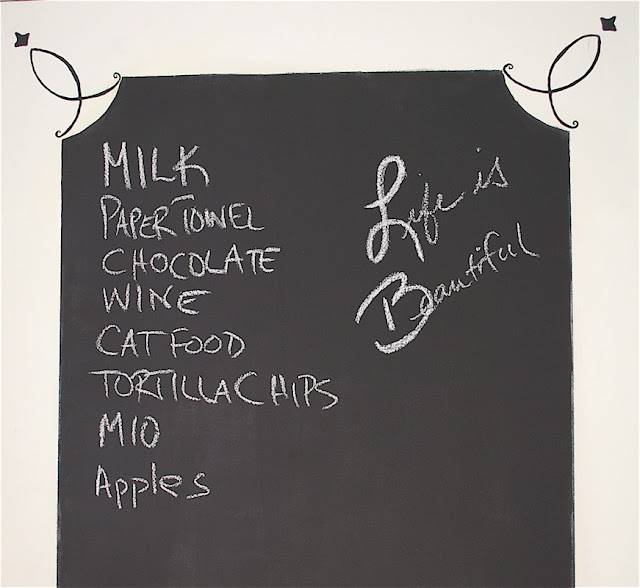 MILK
PAPER TOWEL
CHOCOLATE
WINE
CAT FOOD
TORTILLA CHIPS
MIO
Apples
Life is
Beautiful